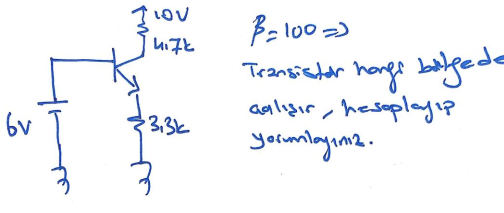 10V
4.7k
6V
3.3k
β=100 =>
Transistör hangi bölgede
çalışır, hesaplayıp
yorumlayınız.